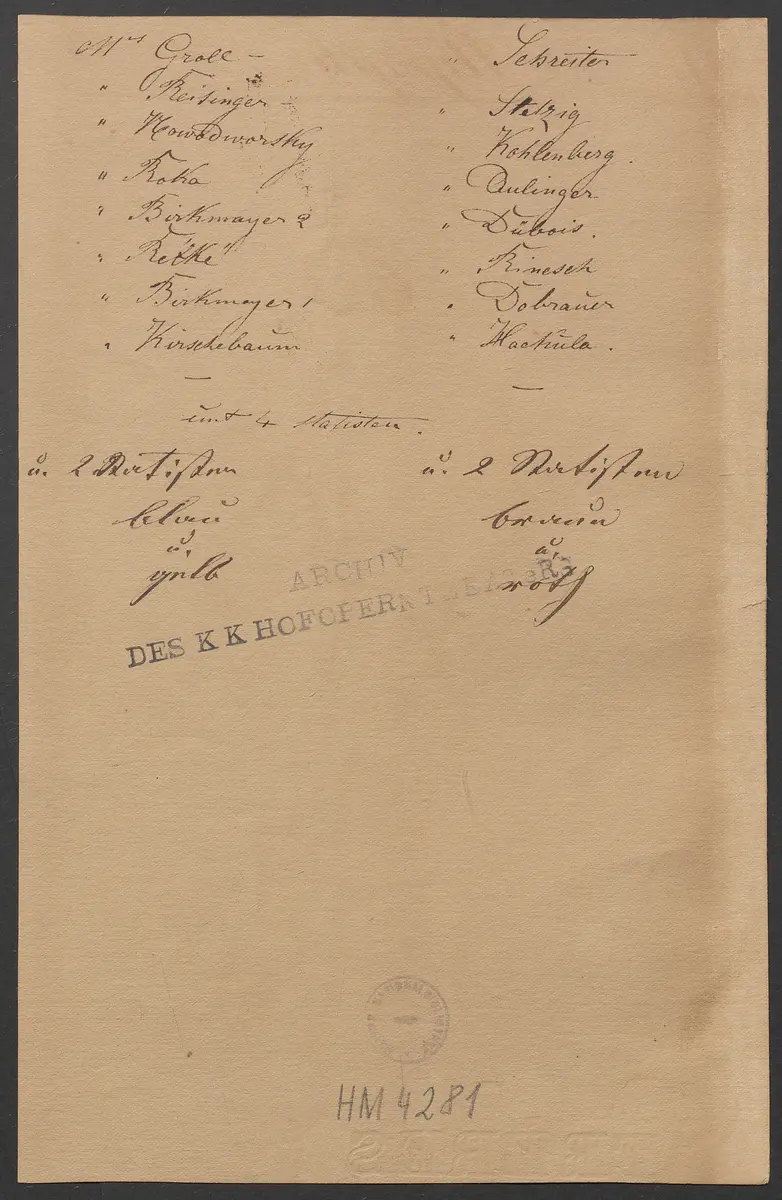 Mrs Groll –
" Reisinger –
" Nowodworsky
" Roka
" Birkmayer 2
" Retke
" Birkmayer 1
" Kirschebaum
—
" Schreiter
" Stelzig
" Kohlenberg.
" Aulinger
" Dübois.
" Rinesch
" Dobrauer
" Hackula.
—
unt 4 statisten.
u. 2 Statisten
blau
u.
gelb
u. 2 Statisten
braun
u.
roth
ARCHIV
DES K K HOFOPERNTHEATERS
HM 4281